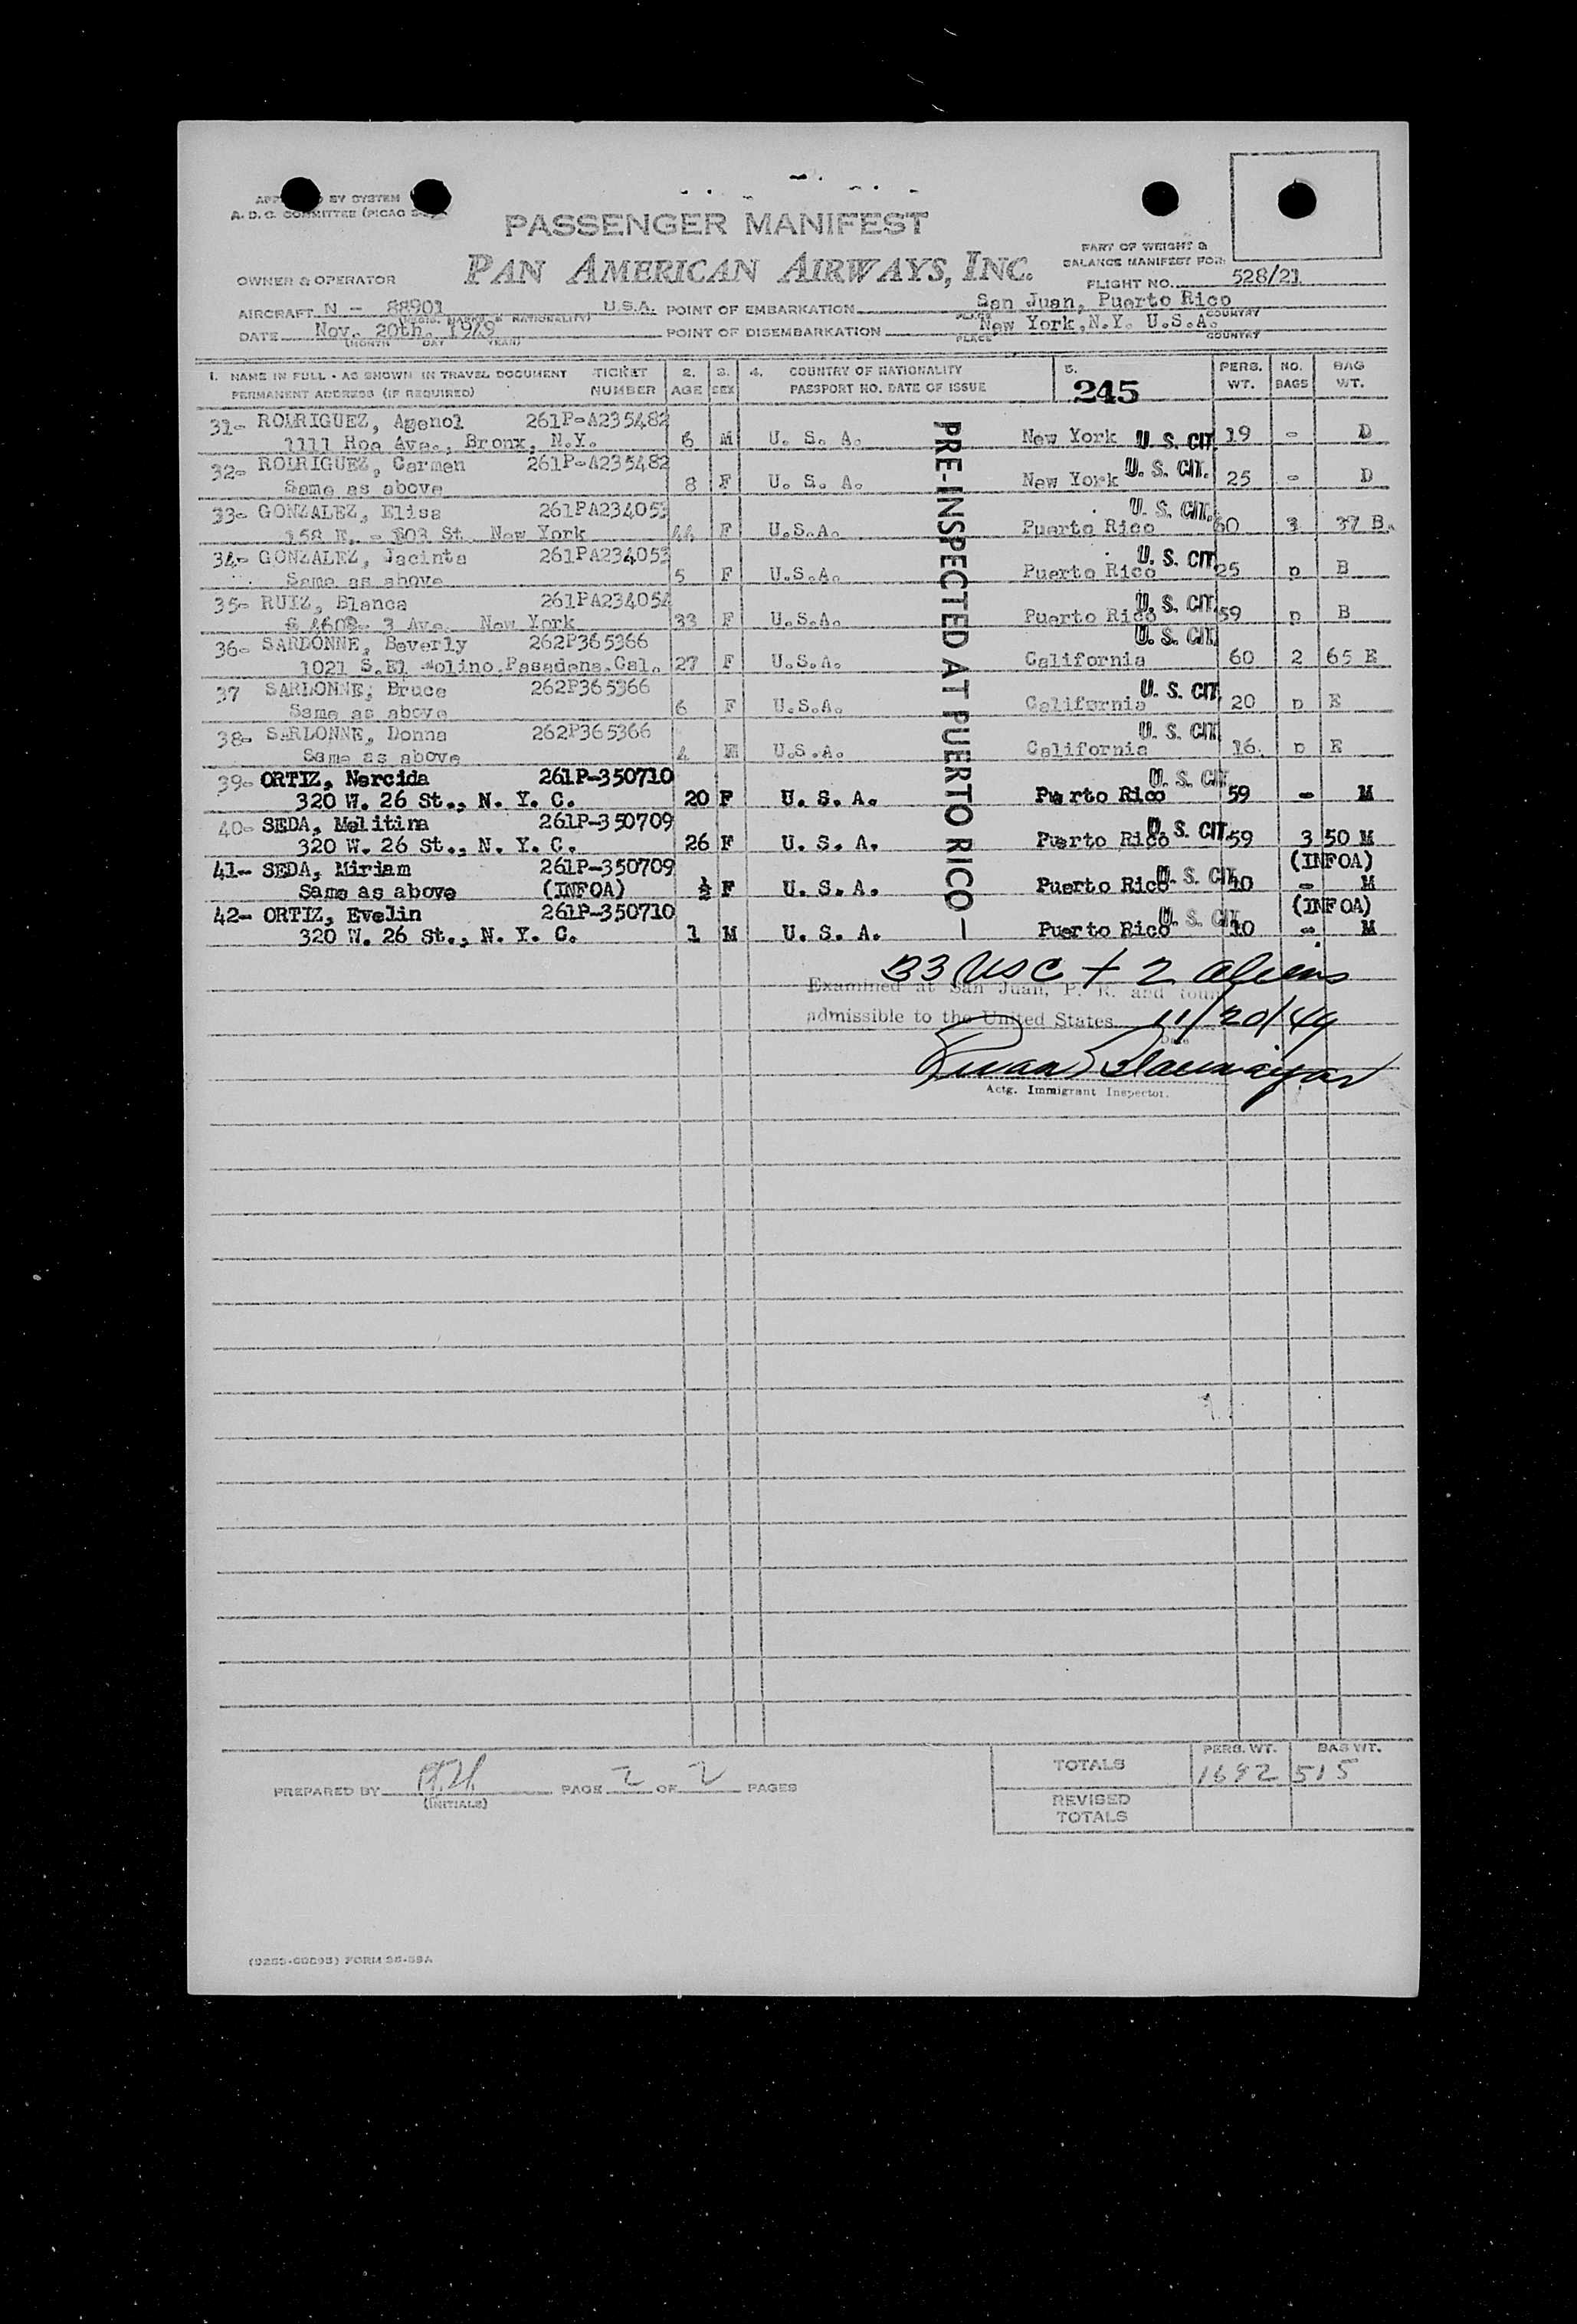 BY SYSTEM
A. D. C. COMMITTEE (PICAO
PASSENGER MANIFEST
PAN AMERICAN AIRWAYS, INC.
PART OF WEIGHT &
BALANCE MANIFEST FOR:
OWNER & OPERATOR
FLIGHT NO. 528/21
AIRCRAFT N - 88901 U.S.A. POINT OF EMBARKATION San Juan, Puerto Rico
PLACE COUNTRY
DATE Nov. 20th. 1949 POINT OF DISEMBARKATION New York,N.Y. U.S.A.
(MONTH DAY YEAR) PLACE COUNTRY
1. NAME IN FULL - AS SHOWN IN TRAVEL DOCUMENT TICKET 2. 3. 4. COUNTRY OF NATIONALITY 5. PERS. NO. BAG
PERMANENT ADDRESS (IF REQUIRED) NUMBER AGE SEX PASSPORT NO. DATE OF ISSUE 245 WT. BAGS WT.
31- RODRIGUEZ, Agenol 261P-A235482
1111 Hoe Ave., Bronx, N.Y. 6 M U. S. A. New York U. S. CIT. 19 - D
32- RODRIGUEZ, Carmen 261P-A235482
Same as above 8 F U. S. A. New York U. S. CIT. 25 - D
33- GONZALEZ, Elisa 261PA234053
158 E. - 103 St. New York 44 F U.S.A. Puerto Rico U. S. CIT. 60 3 37 B.
34- GONZALEZ, Jacinta 261PA234053
Same as above 5 F U.S.A. Puerto Rico U. S. CIT. 25 p B
35- RUIZ, Blanca 261PA234054
3 Ave. New York 33 F U.S.A. Puerto Rico U. S. CIT. 59 p B
36- SARDONNE, Beverly 262P365366
1021 S.El Molino,Pasadena,Cal. 27 F U.S.A. California U. S. CIT. 60 2 65 E
37 SARDONNE, Bruce 262P365366
Same as above 6 F U.S.A. California U. S. CIT. 20 p E
38- SARDONNE, Donna 262P365366
Same as above 4 M U.S.A. California U. S. CIT. 16. p E
39- ORTIZ, Nercida 261P-350710
320 W. 26 St., N. Y. C. 20 F U. S. A. Puerto Rico U. S. CIT. 59 - M
40- SEDA, Melitina 261P-350709
320 W. 26 St., N. Y. C. 26 F U. S. A. Puerto Rico U. S. CIT. 59 3 50 M
41- SEDA, Miriam 261P-350709 (INFOA)
Same as above (INFOA) ½ F U. S. A. Puerto Rico U. S. CIT. 10 - M
42- ORTIZ, Evelin 261P-350710 (INFOA)
320 W. 26 St., N. Y. C. 1 M U. S. A. Puerto Rico U. S. CIT. 10 - M
PRE-INSPECTED AT PUERTO RICO -
33 USC + 2 aliens
Examined at San Juan, P. R. and found
admissible to the United States 11/20/49
Date
Actg. Immigrant Inspector.
PERS. WT. BAG WT.
TOTALS 1692 515
PREPARED BY PAGE 2 OF 2 PAGES
(INITIALS)
REVISED
TOTALS
FORM